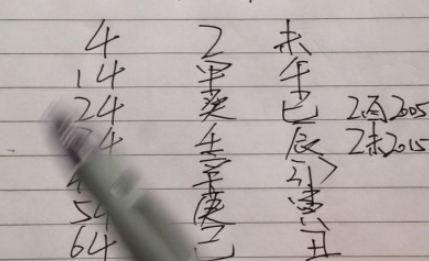 4 乙 未
14 甲 午
24 癸 巳 乙酉2005
34 壬 辰 乙未2015
辛 卯
54 庚 寅
64 己 丑